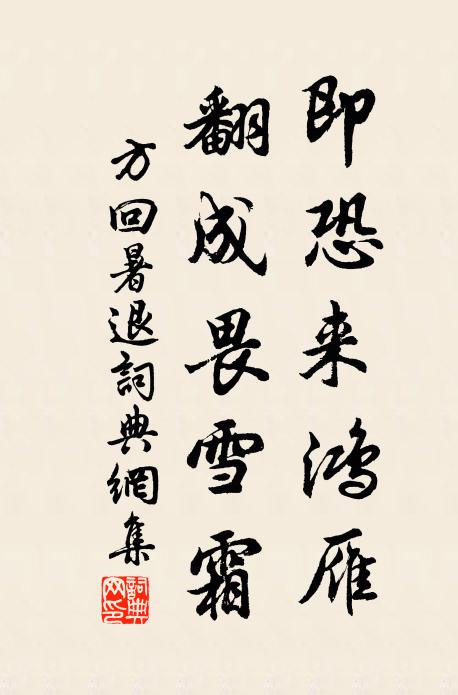 即恐来鸿雁
翻成畏雪霜
方回暑退詞典網集
詞典网印